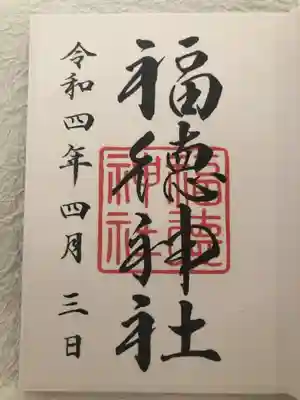 福徳神社
福徳神社
令和四年四月三日